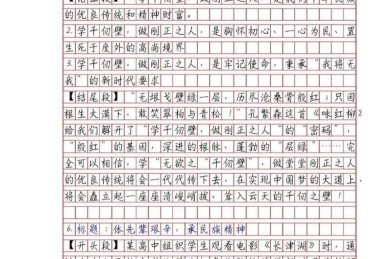 的优良传统和精神财富。
2.学千仞壁，做刚正之人，是胸怀初心、一心为民、置
生死于度外的高尚境界
3.学千仞壁，做刚正之人，是牢记使命，秉承“我将无
我”的新时代要求
【结尾段】“无垠戈壁绿一层，历尽沧桑骨殷红，只因
根生大漠下，敢笑翠柏与青松！”孔繁森这首《咏红柳》
给我们解开了“学千仞壁，做刚正之人”的“密码”，
“殷红”的基因、深进的根脉、蓬勃的“层绿”……完
全可以相信，学“无欲之”千仞壁”，做堂堂刚正之人
的优良传统将会一代代传下去，在实现中国梦的大道上，
将会矗立起一座座清峻峭拔、耸入云天的千仞之壁！
6.标题：体先辈艰辛，承民族精神
【开头段】某高中组织学生观看电影《长津湖》时，通